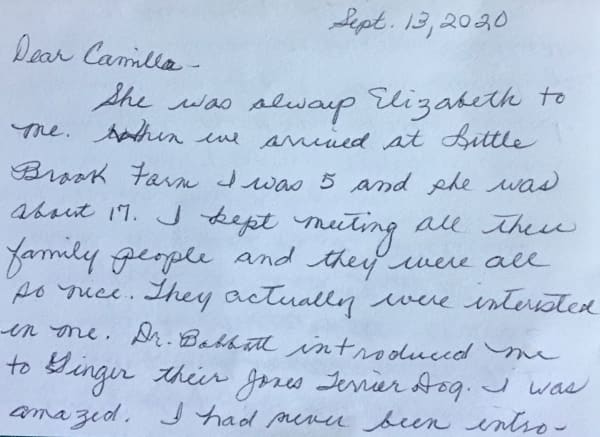 Sept. 13, 2020
Dear Camilla -
She was always Elizabeth to
me. When we arrived at Little
Brook Farm I was 5 and she was
about 17. I kept meeting all these
family people and they were all
so nice. They actually were interested
in me. Dr. Babbott introduced me
to Ginger their Jones Terrier Dog. I was
amazed. I had never been intro-